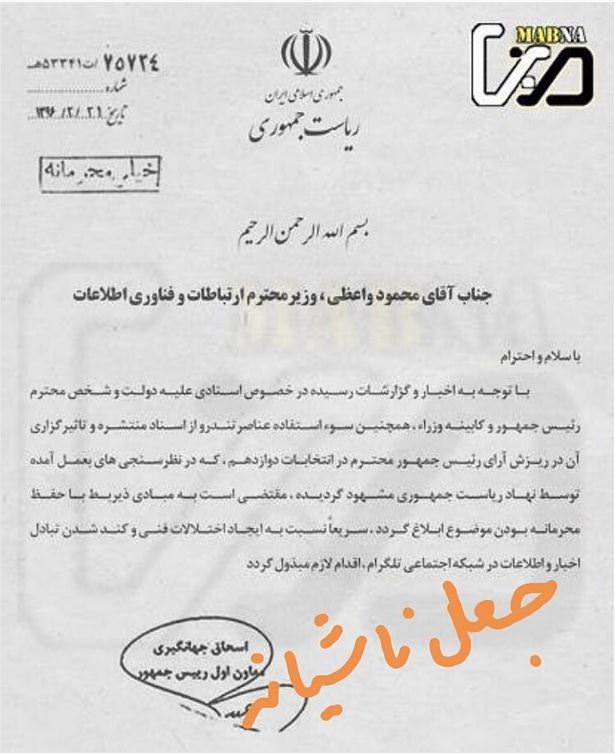 MABNA
مبنا
۷۵۷۲۴ /ت۵۳۳۴۱هـ
شماره
تاریخ ۱۳۹۶/۲/۲۱
جمهوری اسلامی ایران
ریاست جمهوری
خیلی محرمانه
بسم الله الرحمن الرحیم
جناب آقای محمود واعظی، وزیر محترم ارتباطات و فناوری اطلاعات
با سلام و احترام
با توجه به اخبار و گزارشات رسیده در خصوص اسنادی علیه دولت و شخص محترم
رئیس جمهور و کابینه وزراء، همچنین سوء استفاده عناصر تندرو از اسناد منتشره و تاثیرگزاری
آن در ریزش آرای رئیس جمهور محترم در انتخابات دوازدهم، که در نظرسنجی های بعمل آمده
توسط نهاد ریاست جمهوری مشهود گردیده، مقتضی است به مبادی ذیربط با حفظ
محرمانه بودن موضوع ابلاغ گردد، سریعاً نسبت به ایجاد اختلالات فنی و کند شدن تبادل
اخبار و اطلاعات در شبکه اجتماعی تلگرام، اقدام لازم مبذول گردد
جعل ناشیانه
اسحاق جهانگیری
معاون اول رییس جمهور